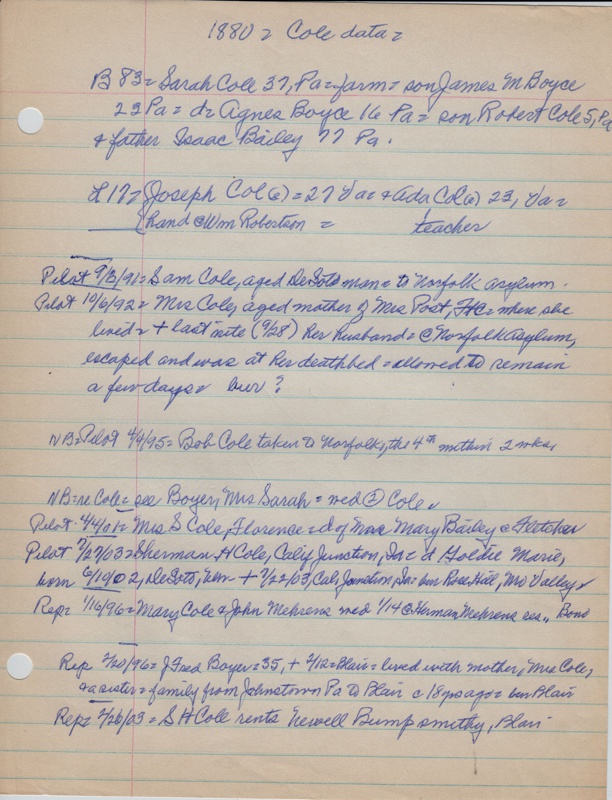 1880 = Cole data =
B 83 = Sarah Cole 37, Pa = farm = son James M Boyce
22 Pa = d = Agnes Boyce 16 Pa = son Robert Cole 5, Pa
+ father Isaac Bailey 77 Pa.
L 17 = Joseph Col(e) = 27 Va = + Ada Col(e) 23, Va =
(hand @ Wm Robertson = teacher
Pilot 9/3/91 = Sam Cole, aged DeSoto man = to Norfolk asylum.
Pilot 10/6/92 = Mrs Cole, aged mother of Mrs Post, = where she
lived = + last nite (9/28) Her husband = @ Norfolk Asylum,
escaped and was at her deathbed = allowed to remain
a few days = bur ?
NB = Pilot 4/4/95 = Bob Cole taken to Norfolk, the 4th within 2 wks,
NB = re Cole = see Boyer, Mrs Sarah = wed ② Cole
Pilot 4/4/01 = Mrs S Cole, Florence = d of Mary Bailey @ Fletcher
Pilot 7/27/03 = Sherman H Cole, Calif Junction, Ia = d Goldie Marie,
born 6/19/02, DeSoto, + 7/22/03, Calif Junction, Ia = bur Rose Hill, Mo Valley
Rep = 1/16/96 = Mary Cole & John Mehrens wed 1/14 @ Herman Mehrens res.,
Rep 2/20/96 = J Fred Boyer = 35, + 2/12 = Blair = lived with mother, Mrs Cole,
+ a sister = family from Johnstown Pa to Blair c 18 yrs ago = bur Blair
Rep = 2/26/03 = S H Cole rents Newell Bump smithy, Blair